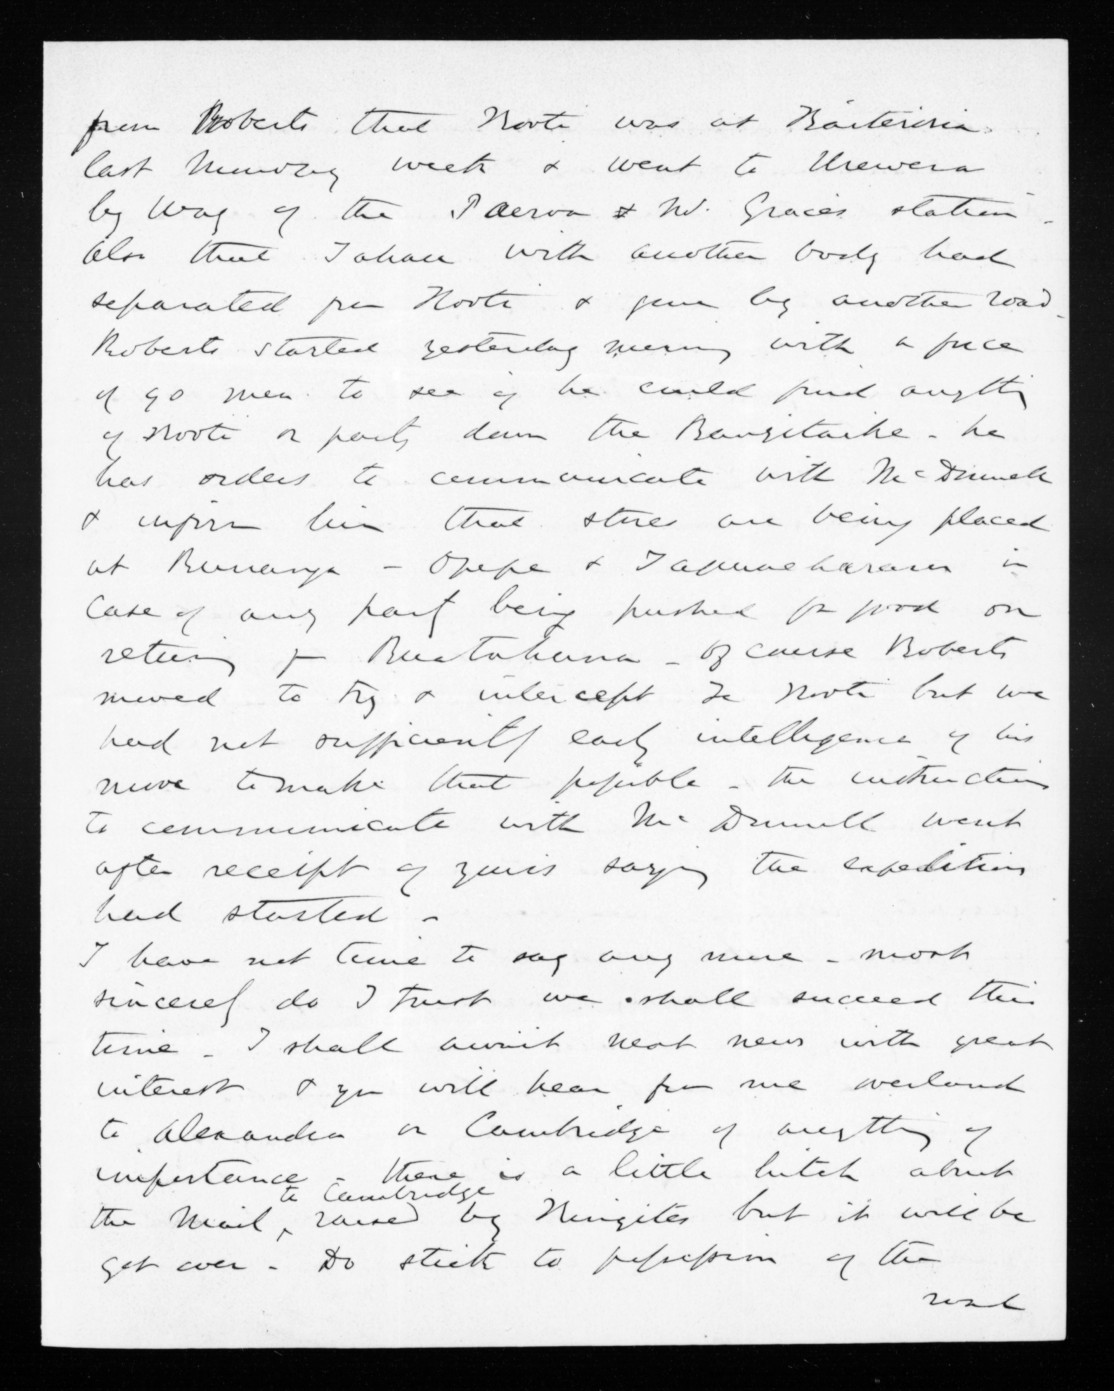 from Roberts that Kooti was at
last Monday week & went to Urewera
by way of the Paeroa & Mr. Graces station -
also that Tahau with another body had
separated from Kooti & gone by another road -
Roberts started yesterday morning with a force
of 90 men to see if he could find anything
of Kooti or party down the Rangitaike - he
has orders to communicate with McDonnell
& inform him that stores are being placed
at Runanga - Opepe & Tapuaeharuru in
case of any party being pushed for food on
retiring for Ruatahuna - Of course Roberts
moved to try & intercept Te Kooti but we
had not sufficiently early intelligence of his
move to make that possible - the instructions
to communicate with McDonnell went
after receipt of yours saying the expedition
had started -
I have not time to say any more - most
sincerely do I trust we shall succeed this
time - I shall await next news with great
interest & you will hear from me overland
to Alexandra or Cambridge of anything of
importance - there is a little hitch about
the Mail to Cambridge, raised by Kingites but it will be
got over - Do stick to possession of the
road